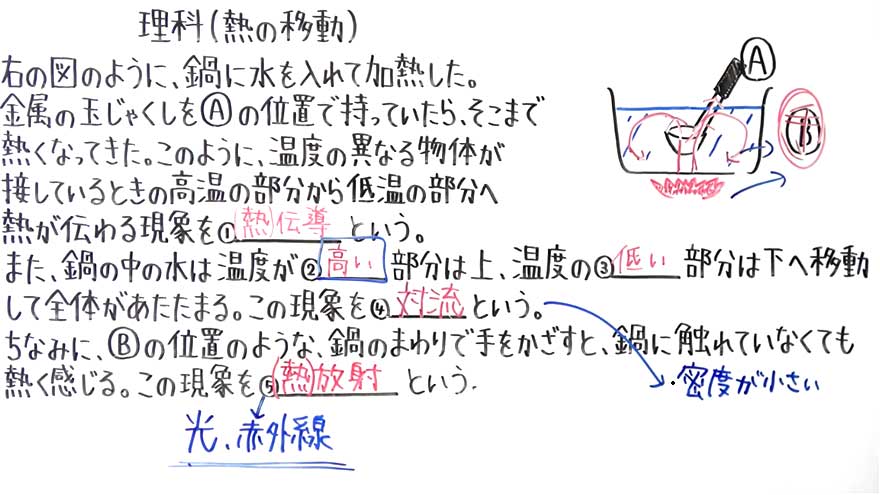 理科(熱の移動)
右の図のように、鍋に水を入れて加熱した。
金属の玉じゃくしをⒶの位置で持っていたら、そこまで
熱くなってきた。このように、温度の異なる物体が
接しているときの高温の部分から低温の部分へ
熱が伝わる現象を①(熱)伝導という。
また、鍋の中の水は温度が②高い部分は上、温度の③低い部分は下へ移動
して全体があたたまる。この現象を④対流という。
ちなみに、Ⓑの位置のような、鍋のまわりで手をかざすと、鍋に触れていなくても
熱く感じる。この現象を⑤(熱)放射という.
・密度が小さい
光、赤外線
Ⓐ
Ⓑ